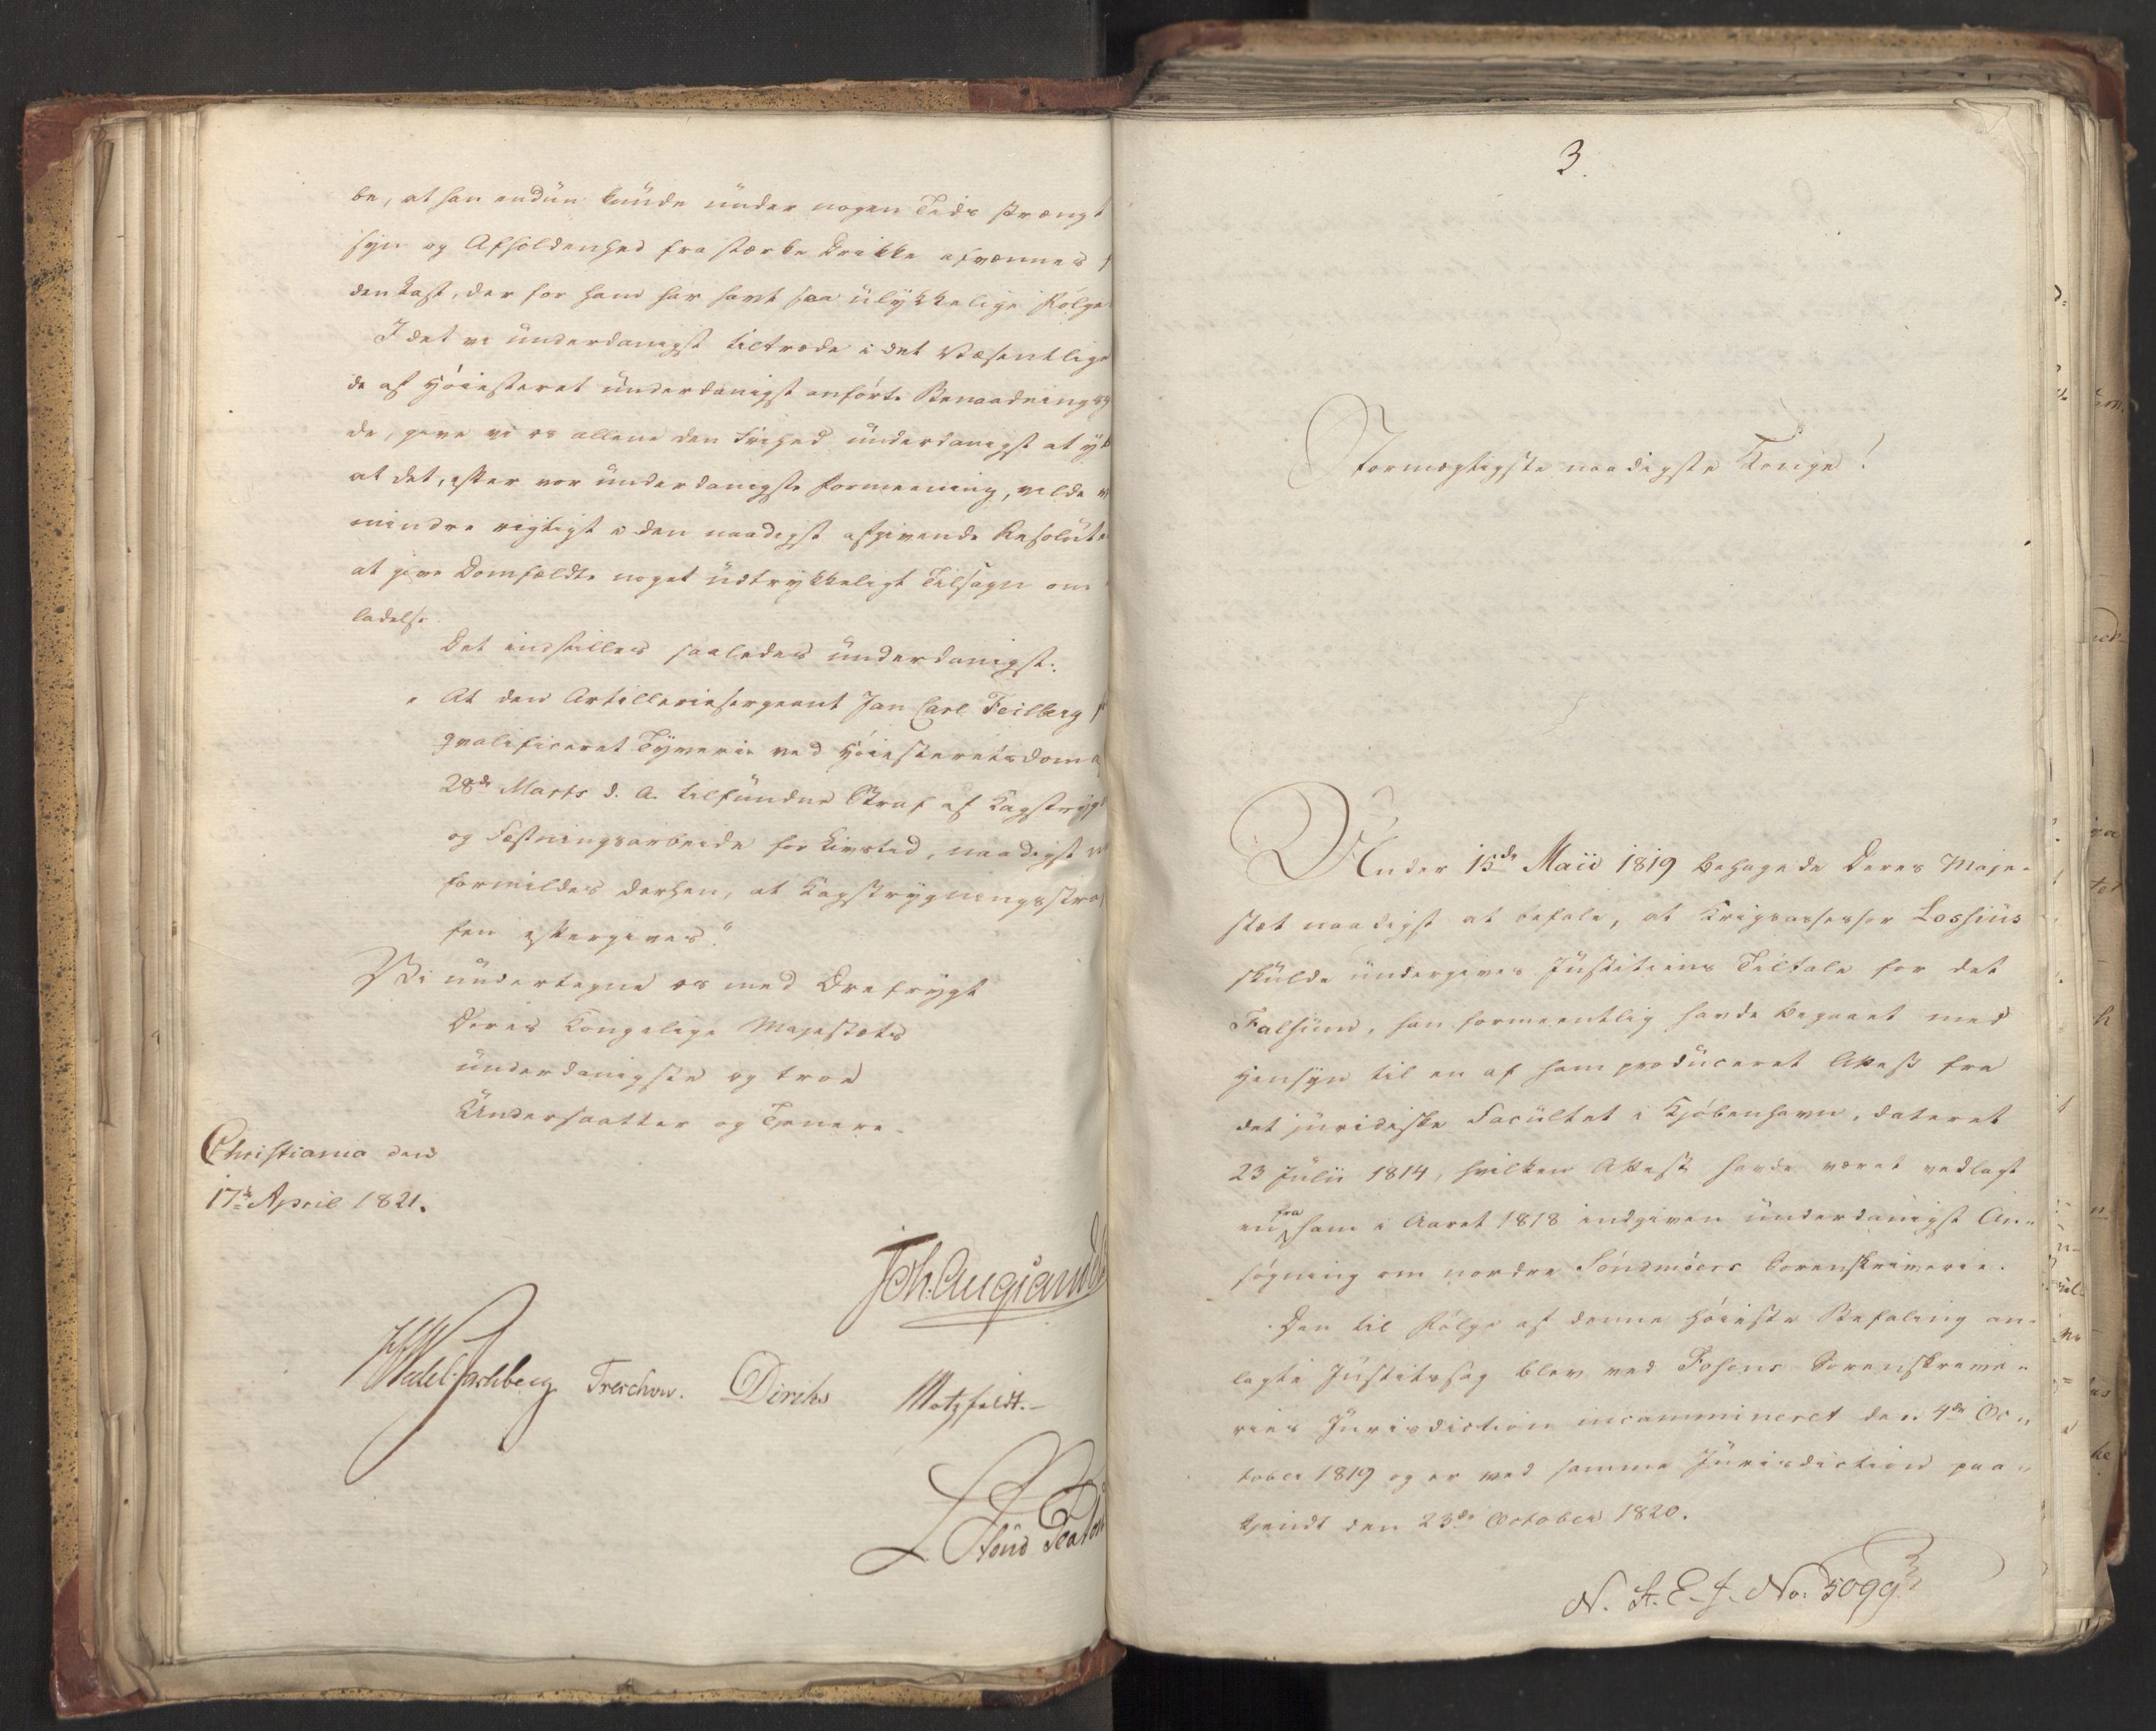 be, at han endnu kunde under nogen Tids strengt
syn og Afholdenhed fra stærke Drikke afvænnes f
den Last, der for ham har havt saa ulykkelige Følge
I det vi underdanigst tiltræde i det Væsentlige
de af Høiesteret underdanigst anførte Benaadningsg
de, give vi os allene den Frihed underdanigst at yt
at det, efter vor underdanigste Formeening, vilde v
mindre rigtigt i den naadigst afgivende Resolutio
at give Domfældte noget udtrykkeligt Tilsagn om
ladelse.
Det indstilles saaledes underdanigst:
" At den Artilleriesergeant Jan Carl Feilberg f
qvalificeret Tyverie ved Høiesteretsdom a
28de Marts d. A. tilfundne Straf af Kagstryg
og Fæstningsarbeide for Livstid, naadigst
formildes derhen, at Kagstrygningsstra
fen eftergives."
Vi undertegne os med Ærefrygt
Deres Kongelige Majestæts
underdanigste og troe
Undersaatter og Tjenere.
Christiania den
17de April 1821.
Joh. Aug. Sand
HWedel Jarlsberg Treschow. Diriks Motzfeldt.
3.
Stormægtigste naadigste Konge!
Under 15de Maii 1819 behagede Deres Maje-
stæt naadigst at befale, at Krigsassessor Lossius
skulde undergives Justitiens Tiltale for det
Falsum, han formeentlig havde begaaet med
Hensyn til en af ham produceret Attest fra
det juridiske Facultet i Kjøbenhavn, dateret
23 Julii 1814, hvilken Attest havde været vedlagt
en fra ham i Aaret 1818 indgiven underdanigst An-
søgning om nordre Søndmøers Sorenskriverie.
Den til Følge af denne Høieste Befaling an-
lagte Justitssag blev ved Fosens Sorenskrive-
ries Jurisdiction incammineret den 4de Oc-
tober 1819 og er ved samme Jurisdiction paa-
kjendt den 23de October 1820.
N. St. E. J. No: 5099